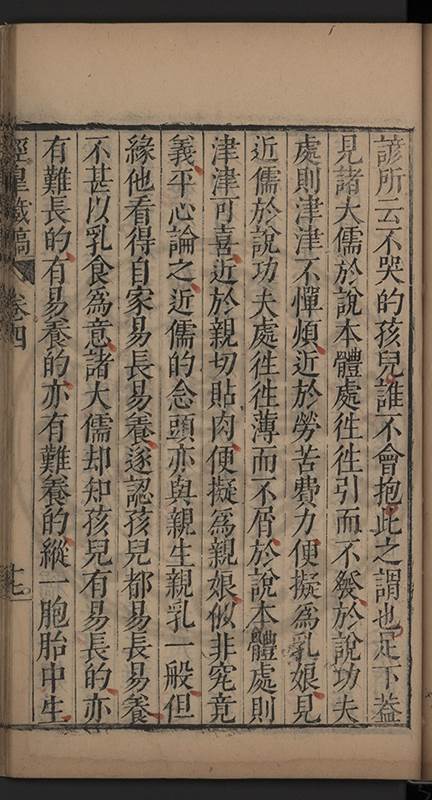 諺所云不哭的孩兒誰不會抱此之謂也足下葢
見諸大儒於說本體處徃徃引而不發於說功夫
處則津津不憚煩近於勞苦費力便擬為乳娘見
近儒於說功夫處徃徃薄而不屑於說本體處則
津津可喜近於親切貼肉便擬為親娘似非究竟
義平心論之近儒的念頭亦與親生親乳一般但
緣他看得自家易長易養逐認孩兒都易長易養
不甚以乳食為意諸大儒却知孩兒有易長的亦
有難長的有易養的亦有難養的縱一胞胎中生
涇皐藏稿 卷四 十七